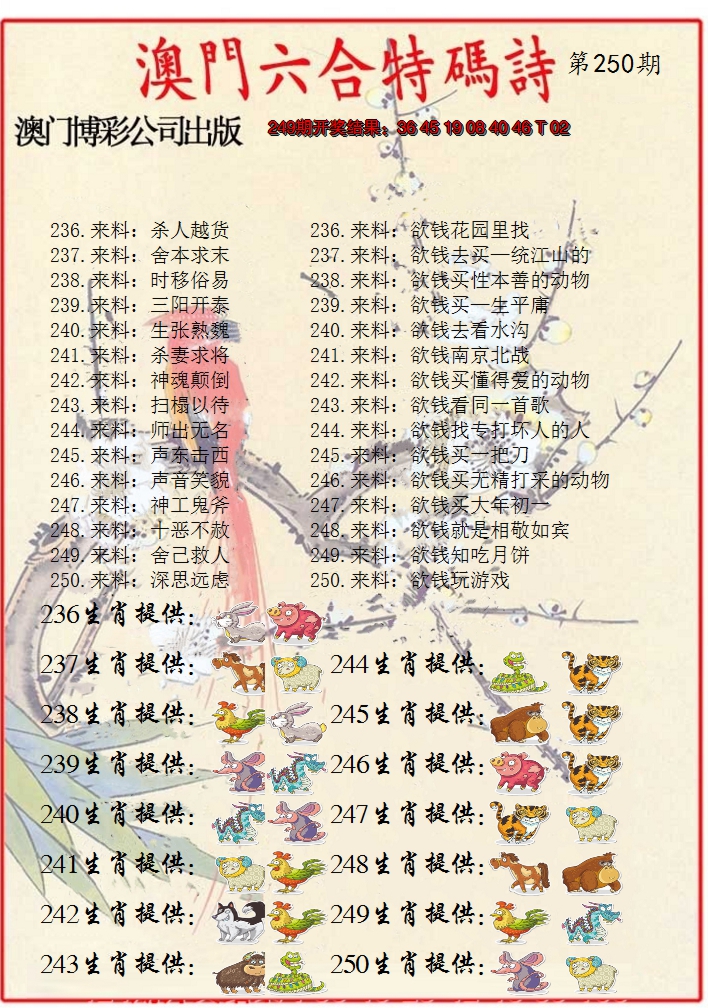 澳門六合特碼詩 第250期
澳门博彩公司出版 249期开奖结果：36 45 19 08 40 46 T 02
236.来料：杀人越货 236.来料：欲钱花园里找
237.来料：舍本求末 237.来料：欲钱去买一统江山的
238.来料：时移俗易 238.来料：欲钱买性本善的动物
239.来料：三阳开泰 239.来料：欲钱买一生平庸
240.来料：生张熟魏 240.来料：欲钱去看水沟
241.来料：杀妻求将 241.来料：欲钱南京北战
242.来料：神魂颠倒 242.来料：欲钱买懂得爱的动物
243.来料：扫榻以待 243.来料：欲钱看同一首歌
244.来料：师出无名 244.来料：欲钱找专打坏人的人
245.来料：声东击西 245.来料：欲钱买一把刀
246.来料：声音笑貌 246.来料：欲钱买无精打采的动物
247.来料：神工鬼斧 247.来料：欲钱买大年初一
248.来料：十恶不赦 248.来料：欲钱就是相敬如宾
249.来料：舍己救人 249.来料：欲钱知吃月饼
250.来料：深思远虑 250.来料：欲钱玩游戏
236生肖提供：
237生肖提供： 244生肖提供：
238生肖提供： 245生肖提供：
239生肖提供： 246生肖提供：
240生肖提供： 247生肖提供：
241生肖提供： 248生肖提供：
242生肖提供： 249生肖提供：
243生肖提供： 250生肖提供：